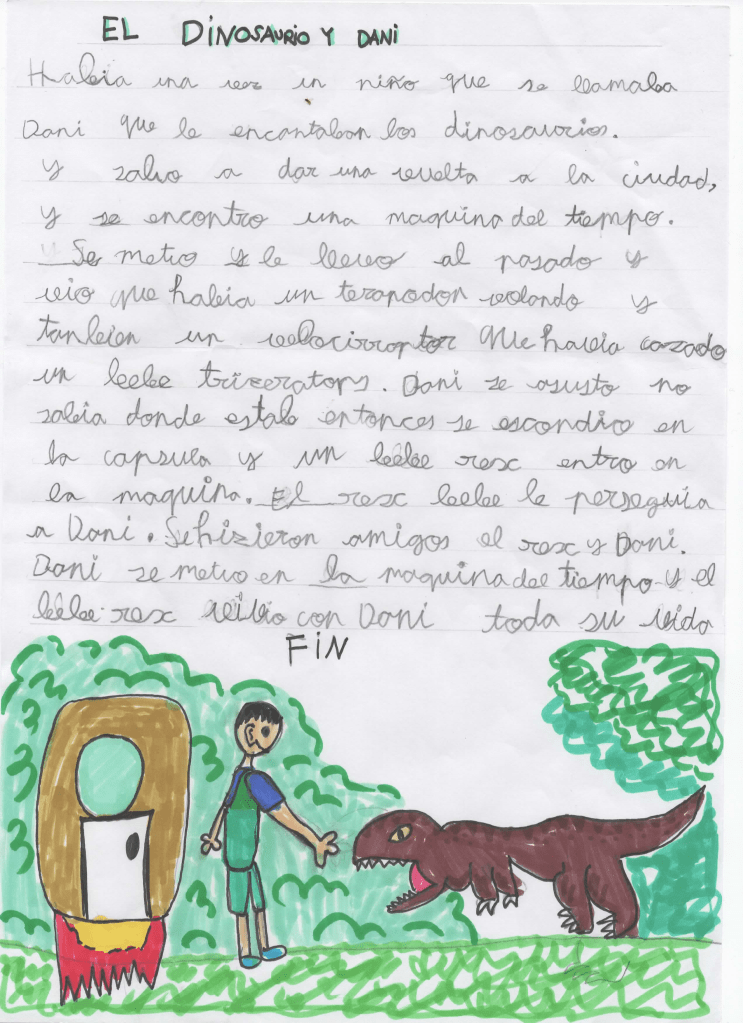 EL DINOSAURIO Y DANI
Habia una vez un niño que se llamaba
Dani que le encantaban los dinosaurios.
Y salio a dar una vuelta a la ciudad,
y se encontro una maquina del tiempo.
Se metio y le llevo al pasado y
vio que habia un teranodon volando y
tanbien un velocirraptor que havia cazado
un bebe triceratops. Dani se asusto no
sabia donde estab entonces se escondio en
la capsula y un bebe rex entro en
la maquina. El rex bebe le perseguia
a Dani. Se hizieron amigos el rex y Dani.
Dani se metio en la maquina del tiempo y el
bebe rex vivio con Dani toda su vida
FIN